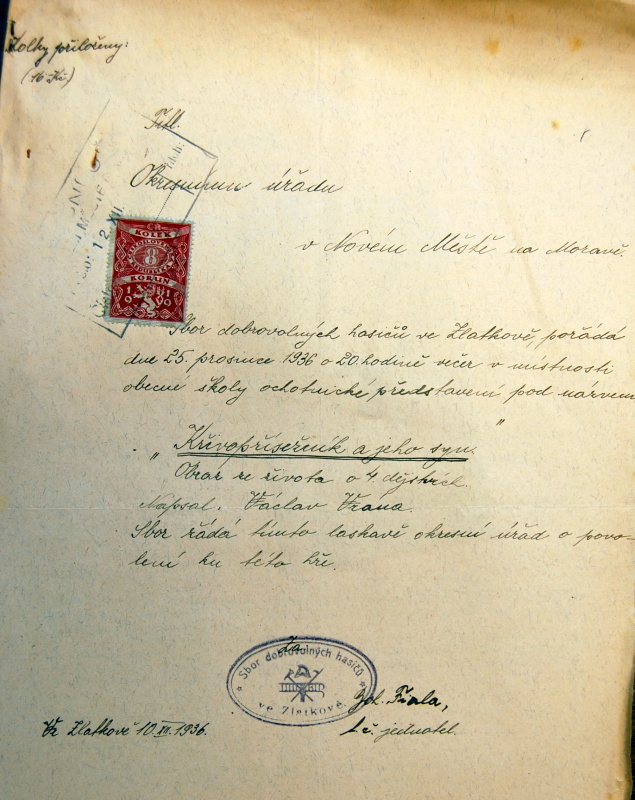 Kolky přiloženy:
(16 Kč)
Titl.
Okresnímu úřadu
v Novém Městě na Moravě.
12. XII.
ČR
KOLEK
8
KORUN
Sbor dobrovolných hasičů ve Zlatkově, pořádá
dne 25. prosince 1936 o 20. hodině večer v místnosti
obecné školy ochotnické představení pod názvem
„ Křivopřísežník a jeho syn. "
Obraz ze života o 4. dějstvích.
Napsal. Václav Vrana.
Sbor žádá tímto laskavě okresní úřad o povo-
lení ku této hře.
Za
Sbor dobrovolných hasičů
ve Zlatkově.
Fiala,
t. č. jednatel.
Ve Zlatkově 10. XII. 1936.